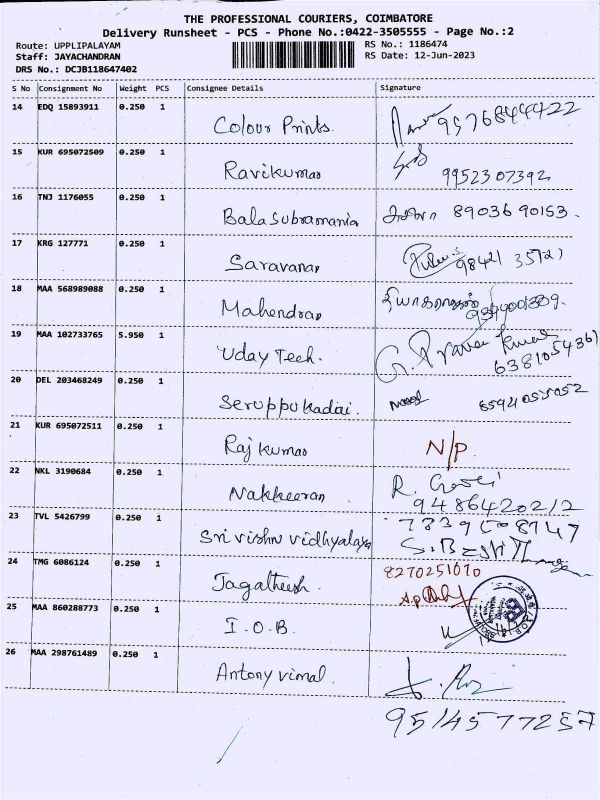 THE PROFESSIONAL COURIERS, COIMBATORE
Delivery Runsheet - PCS - Phone No.:0422-3505555 - Page No.:2
Route: UPPLIPALAYAM RS No.: 1186474
Staff: JAYACHANDRAN RS Date: 12-Jun-2023
DRS No.: DCJB118647402
S No Consignment No Weight PCS Consignee Details Signature
14 EDQ 15893911 0.250 1
Colour Prints.
15 KUR 695072509 0.250 1
Ravikumar 9952307392
16 TNJ 1176055 0.250 1
Balasubramania 89036 90153.
17 KRG 127771 0.250 1
Saravanan 98421 35721
18 MAA 568989088 0.250 1
Mahendran தியாகராஜன்
19 MAA 102733765 5.950 1
Uday Tech. G. Praveen Kumar
6381054361
20 DEL 203468249 0.250 1
Seruppukadai.
21 KUR 695072511 0.250 1
Rajkumar N/P
22 NKL 3190684 0.250 1
Nakkeeran R.
9486420212
23 TVL 5426799 0.250 1
Sri vishnu vidhyalaya
24 TMG 6086124 0.250 1 8270251070
Jagatheesh
25 MAA 860288773 0.250 1
I.O.B.
26 MAA 298761489 0.250 1
Antony vimal.
9514577257